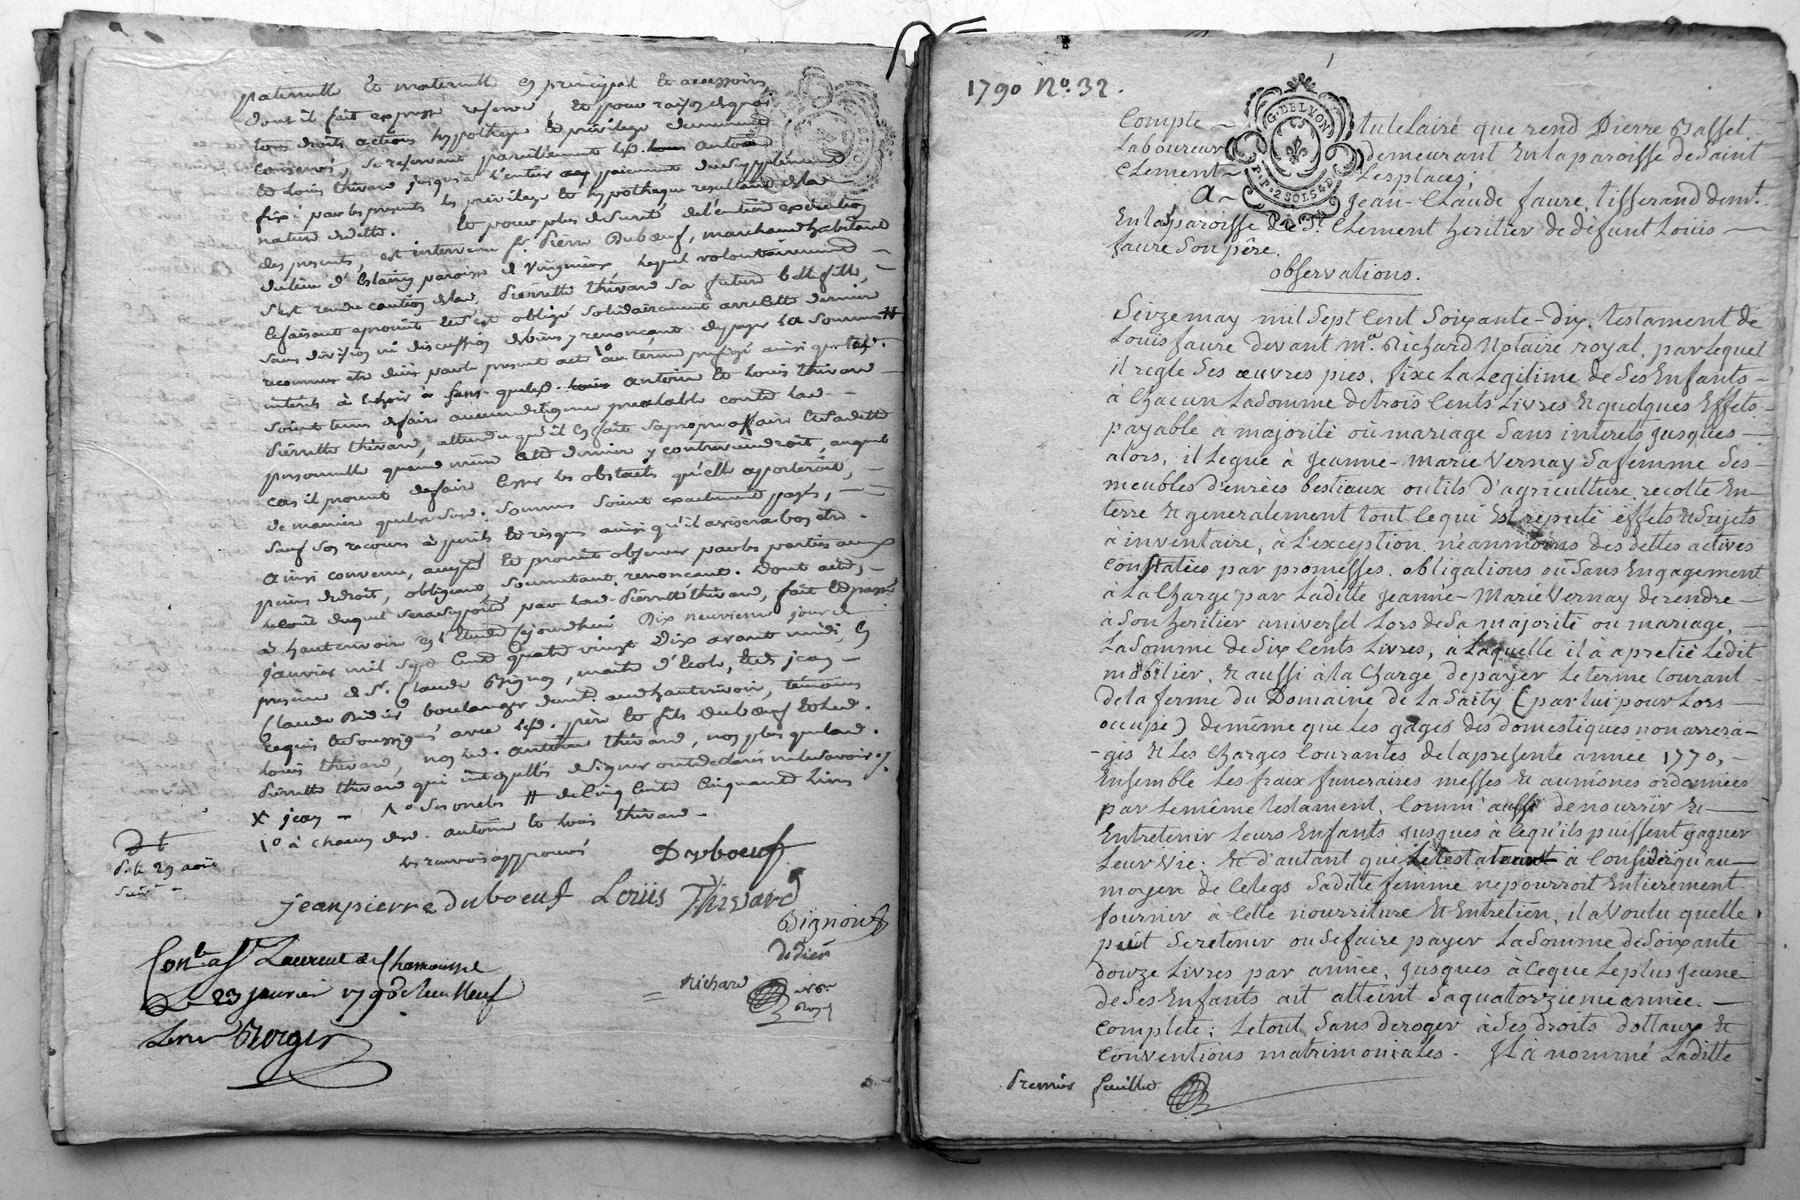 paternelle et maternelle en principal et accessoires
dont il fait expresse reserve, et pour raison de quoi
tous droits actions hypotheque et privilege demeurent
conservés, se reservant pareillement lesd. Antoine
et Louis thivard jusqu'à l'entier payement du supplément
fixé par les presentes les privilege et hypotheque resultant de la
nature de dette. Et pour plus de sureté de l'entiere execution
des presentes, est intervenu sr. Pierre Duboeuf, marchand habitant
du lieu d' paroisse de Virigneux, lequel volontairement
s'est rendu caution de lad. Pierrette thivard sa future belle fille,
ce faisant a promis et s'est obligé solidairement avec elle
sans division ni discussion de biens y renonçant de payer la somme #
reconnue etre duë par le present acte 1o au terme prefigé ainsi que les
interets à echoir sans que lesd. Antoine et Louis thivard
soient tenus de faire aucune diligence prealable contre lad.
Pierrette thivard, attendu qu'il en fait sa propre affaire et sa dette
personnelle quand meme cette derniere y contreviendroit, auquel
cas il promet de faire cesser les obstacles qu'elle apporteroit,
de maniere que lesd. sommes soient exactement payés,
sauf son recours à perils et risques ainsi qu'il avisera bon etre.
Ainsi convenu, accepté et promis observer par les parties aux
peines de droit, obligeant, soumettant, renonçant. Dont acte,
le cout duquel sera supporté par lad. Pierrette thivard, fait et passé
à hauterivoir en l'Etude cejourdhui dix neuvieme jour de
janvier mil sept cent quatre vingt dix avant midi, en
presence de sr. Claude Bignon, maitre d'Ecole, et de jean
Claude Didier boulanger demt. aud. hauterivoir, temoins
requis et soussignés avec lesd. père et fils Duboeuf et led.
Louis thivard, non led. Antoine thivard, non plus que lad.
Pierrette thivard qui interpellés de signer ont declaré ne le savoir ./.
X jean - # de cinq cents cinquante livres
1o à chacun desd. Antoine et Louis thivard -
les renvois approuvés
Duboeuf
29 août
jean pierre duboeuf Louis Thivard
Bignon
didier
Richard
Conlé a St. Laurent de Chamousset
Le 23 janvier 1790
Berger
1790 No. 32.
G. DE LYON
P.P. 2 SOLS 4 D.
Compte tutelaire que rend Pierre Basset
Laboureur demeurant En la paroisse de Saint
Clement Les places;
A Jean-Claude faure, tisserand demt.
En la paroisse de St. Clement heritier de défunt Louis
faure son père.
Observations.
Seize may mil sept cent soixante-dix, testament de
Louis faure devant me. Richard Notaire royal, par lequel
il regle ses œuvres pies, fixe La Legitime de ses Enfants
à Chacun La somme de trois Cents Livres & quelques Effets
payable a majorité où mariage sans interets jusques
alors. il Legue à jeanne-Marie Vernay sa femme ses
meubles denrées bestiaux outils d'agriculture, recolte En
terre & generalement tout Ce qui Est reputé effets & sujets
à inventaire, à L'exception néanmoins des dettes actives
Constatées par promesses, obligations où sans Engagement
à La Charge par Ladite jeanne-Marie Vernay de rendre
à son heritier universel Lors de sa majorité ou mariage,
La somme de Six Cents Livres, à Laquelle il a apretié Ledit
mobilier, & aussi à la Charge de payer Le terme Courant
de la ferme du Domaine de La Sarty (par lui pour Lors
occupé) de même que Les gages des domestiques non arrera-
-gés & Les Charges Courantes de la presente année 1770,
Ensemble Les fraix funeraires messes & aumones ordonnées
par Le même testament, Comm' aussi de nourrir &
Entretenir Leurs Enfants jusques à Ce qu'ils puissent gagner
Leur vie; & d'autant que Le testateur a Considéré qu'au
moyen de Ce Legs Sadite femme ne pourroit Entierement
fournir à Cette nourriture & Entretien, il a voulu quelle
put se retenir ou se faire payer La somme de Soixante
douze Livres par année, jusques à Ce que Le plus jeune
de ses Enfants ait atteint Sa quatorzieme année
Complete; Le tout sans deroger à ses droits dottaux &
Conventions matrimoniales. Il a nommé Ladite
Premier feuillet